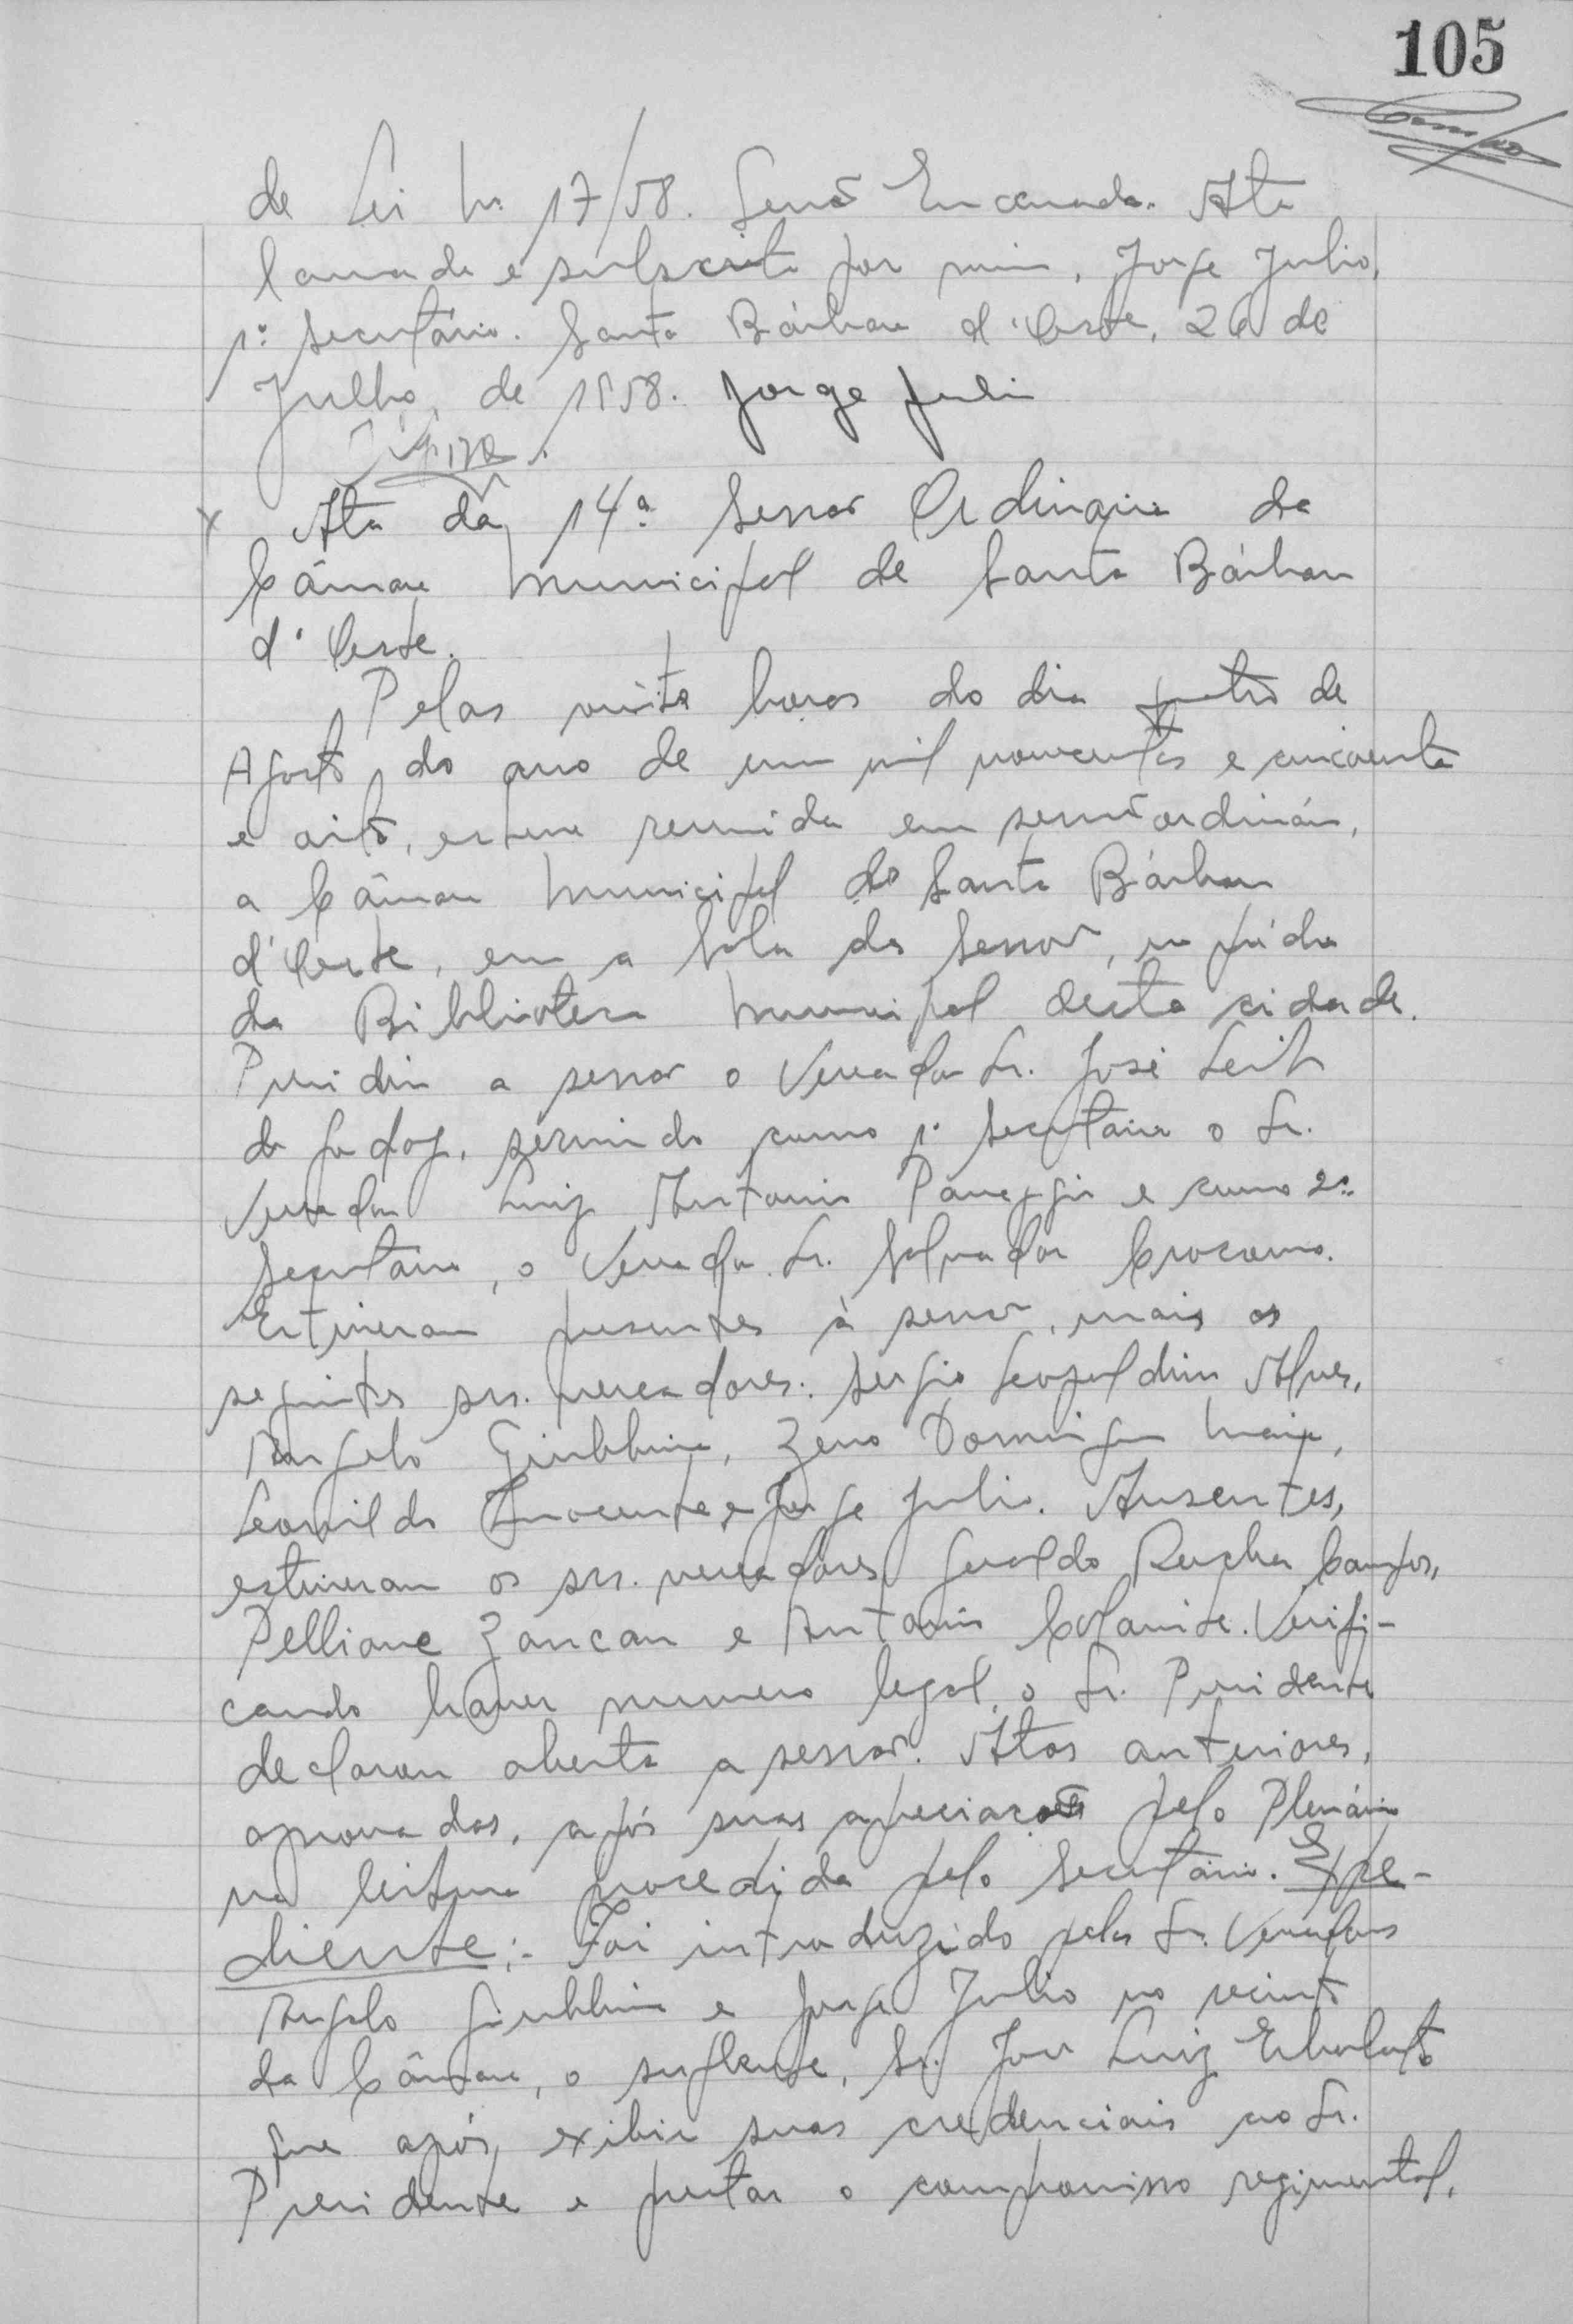 105
de Lei Nr. 17/58. Sessão Encerrada. Ata
lavrada e subscrita por mim, Jorge Julio,
1º secretário. Santa Bárbara d'Oeste, 26 de
Julho, de 1958. Jorge Julio
Ata da 14ª Sessão Ordinária da
Câmara Municipal de Santa Bárbara
d'Oeste.
Pelas vinte horas do dia quatro de
Agosto do ano de um mil novecentos e cincoenta
e oito, esteve reunida em sessão ordinária,
a Câmara Municipal de Santa Bárbara
d'Oeste, em a Sala das Sessões, no prédio
da Biblioteca Municipal desta cidade.
Presidiu a sessão o Vereador Sr. José Leite
de Godoy, servindo como 1º secretário o Sr.
Vereador Luiz Antonio Panaggio e como 2º
secretário, o Vereador Sr. Salvador
Estiveram presentes à sessão, mais os
seguintes srs. vereadores: Sergio Leopoldino Alves,
Angelo Giubbina, Zeno Domingues Maia,
Leonildo Inocente e Jorge Julio. Ausentes,
estiveram os srs. vereadores Geraldo Rocha Campos,
Pellione Zancan e Antonio Verifi-
cando haver numero legal, o Sr. Presidente
declarou aberta a sessão. Atas anteriores,
aprovadas, após suas apreciações pelo Plenário
na leitura procedida pelo Secretário. Expe-
diente:- Foi introduzido pelos Sr. Vereadores
Angelo Giubbina e Jorge Julio no recinto
da Câmara, o suplente, Sr. José Luiz
que após, exibir suas credenciais ao Sr.
Presidente e prestar o compromisso regimental,